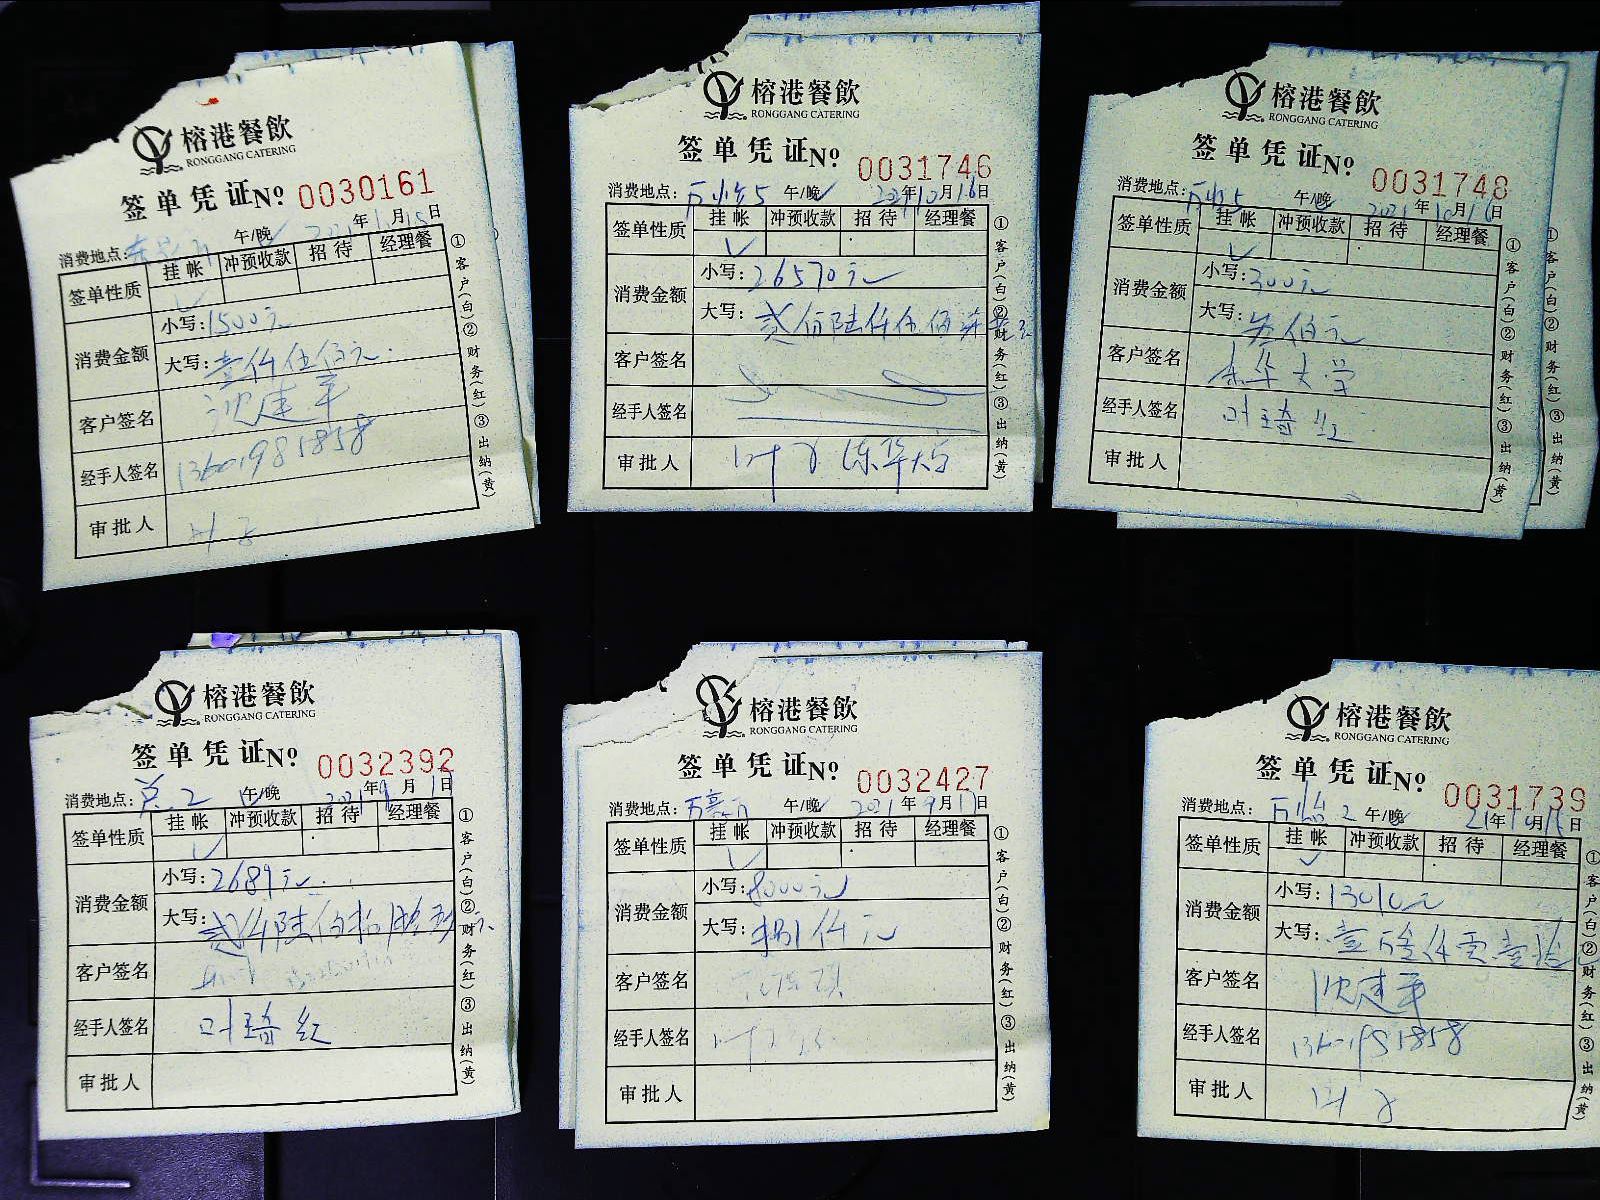 榕港餐飲
RONGGANG CATERING
签单凭证№ 0030161
消费地点: 午/晚 年 月15日
签单性质 挂帐 冲预收款 招待 经理餐
消费金额 小写:1500元
大写:壹仟伍佰元
客户签名 沈建平
经手人签名 13601981858
审批人 叶
①客户(白)②财务(红)③出纳(黄)
榕港餐飲
RONGGANG CATERING
签单凭证№ 0031746
消费地点: 5 午/晚 2021年10月16日
签单性质 挂帐 冲预收款 招待 经理餐
消费金额 小写:26570元
大写:贰 陆仟伍佰柒
客户签名
经手人签名
审批人 叶
①客户(白)②财务(红)③出纳(黄)
榕港餐飲
RONGGANG CATERING
签单凭证№ 0031748
消费地点: 5 午/晚 2021年10月16日
签单性质 挂帐 冲预收款 招待 经理餐
消费金额 小写:300元
大写:叁佰元
客户签名 华大学
经手人签名 叶琦红
审批人
①客户(白)②财务(红)③出纳(黄)
①客户(白)②财务(红)③出纳(黄)
榕港餐飲
RONGGANG CATERING
签单凭证№ 0032392
消费地点: 2 午/晚 2021年9月1日
签单性质 挂帐 冲预收款 招待 经理餐
消费金额 小写:2689元
大写:贰仟陆佰捌拾玖元
客户签名
经手人签名 叶琦红
审批人
①客户(白)②财务(红)③出纳(黄)
榕港餐飲
RONGGANG CATERING
签单凭证№ 0032427
消费地点: 万豪 午/晚 2021年9月17日
签单性质 挂帐 冲预收款 招待 经理餐
消费金额 小写:8000元
大写:捌仟元
客户签名
经手人签名 叶
审批人
①客户(白)②财务(红)③出纳(黄)
榕港餐飲
RONGGANG CATERING
签单凭证№ 0031739
消费地点: 万怡2 午/晚 21年10月 日
签单性质 挂帐 冲预收款 招待 经理餐
消费金额 小写:13010元
大写:壹万叁仟零壹拾
客户签名 沈建平
经手人签名 13601981858
审批人 叶
①客户(白)②财务(红)③出纳(黄)